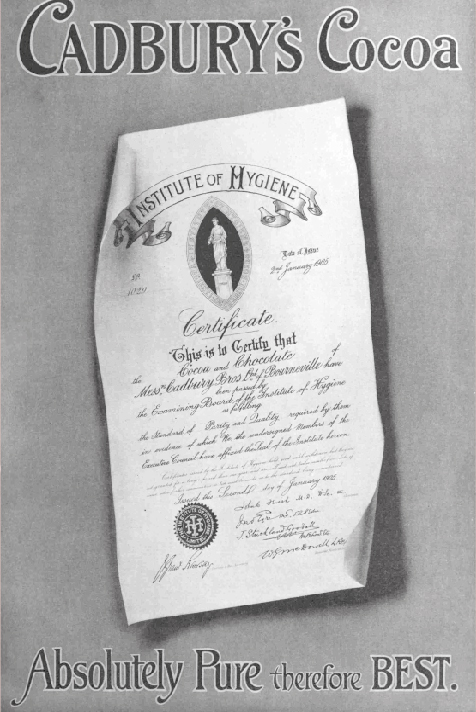 CADBURY'S Cocoa
INSTITUTE OF HYGIENE
Date of Issue
2nd January 1905
Certificate
This is to Certify that
the Cocoa and Chocolate of
Messrs. Cadbury Bros. Ltd. of Bourneville have
been passed by
the Examining Board of the Institute of Hygiene
as fulfilling
the Standard of Purity and Quality required by them
in evidence of which We the undersigned Members of the
Executive Council have affixed the Seal of the Institute hereon
Issued this Second day of January
Absolutely Pure therefore BEST.